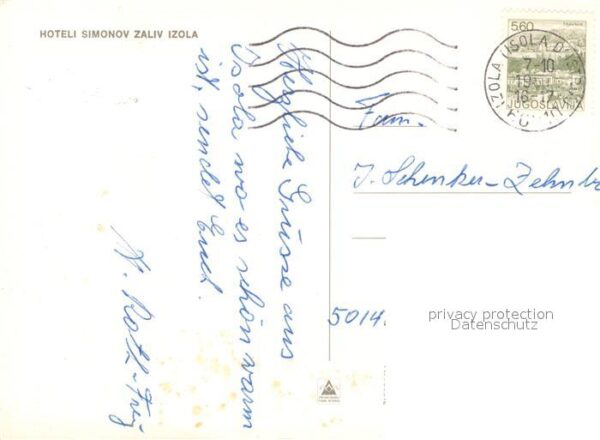 HOTELI SIMONOV ZALIV IZOLA
Herzliche Grüsse aus
Isola wo es schön warm
ist, sendet Euch
H. Roth-Frey
Fam.
J. Schenker-Zehnd
5014
5.60
JUGOSLAVIJA
IZOLA (ISOLA D
7-10
19
16-7
privacy protection
Datenschutz